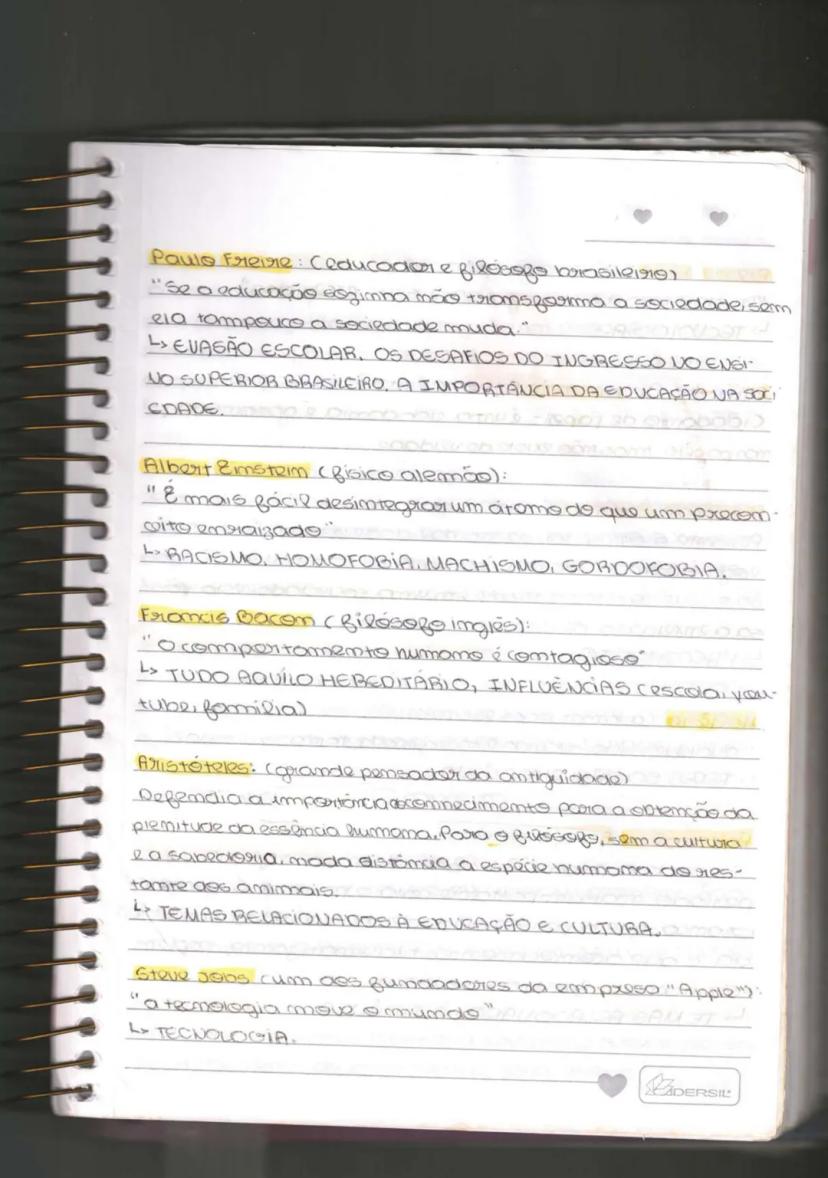 Paulo Freire: (educador e filósofo brasileiro)
"Se a educação sozinha não transforma a sociedade, sem
ela tampouco a sociedade muda."
↳ EVASÃO ESCOLAR. OS DESAFIOS DO INGRESSO NO ENSI-
NO SUPERIOR BRASILEIRO. A IMPORTÂNCIA DA EDUCAÇÃO NA SOCI
EDADE.
Albert Einstein (físico alemão):
"É mais fácil desintegrar um átomo do que um precon-
ceito enraizado"
↳ RACISMO. HOMOFOBIA. MACHISMO, GORDOFOBIA.
Francis Bacon (filósofo inglês):
"O comportamento humano é contagioso"
↳ TUDO AQUILO HEREDITÁRIO, INFLUÊNCIAS (escola, you-
tube, família)
Aristóteles: (grande pensador da antiguidade)
Defendia a importância do conhecimento para a obtenção da
plenitude da essência humana. Para o filósofo, sem a cultura
e a sabedoria, nada distância a espécie humana do res-
tante dos animais.
↳ TEMAS RELACIONADOS À EDUCAÇÃO E CULTURA.
Steve Jobs (um dos fundadores da empresa "Apple"):
"a tecnologia move o mundo"
↳ TECNOLOGIA.